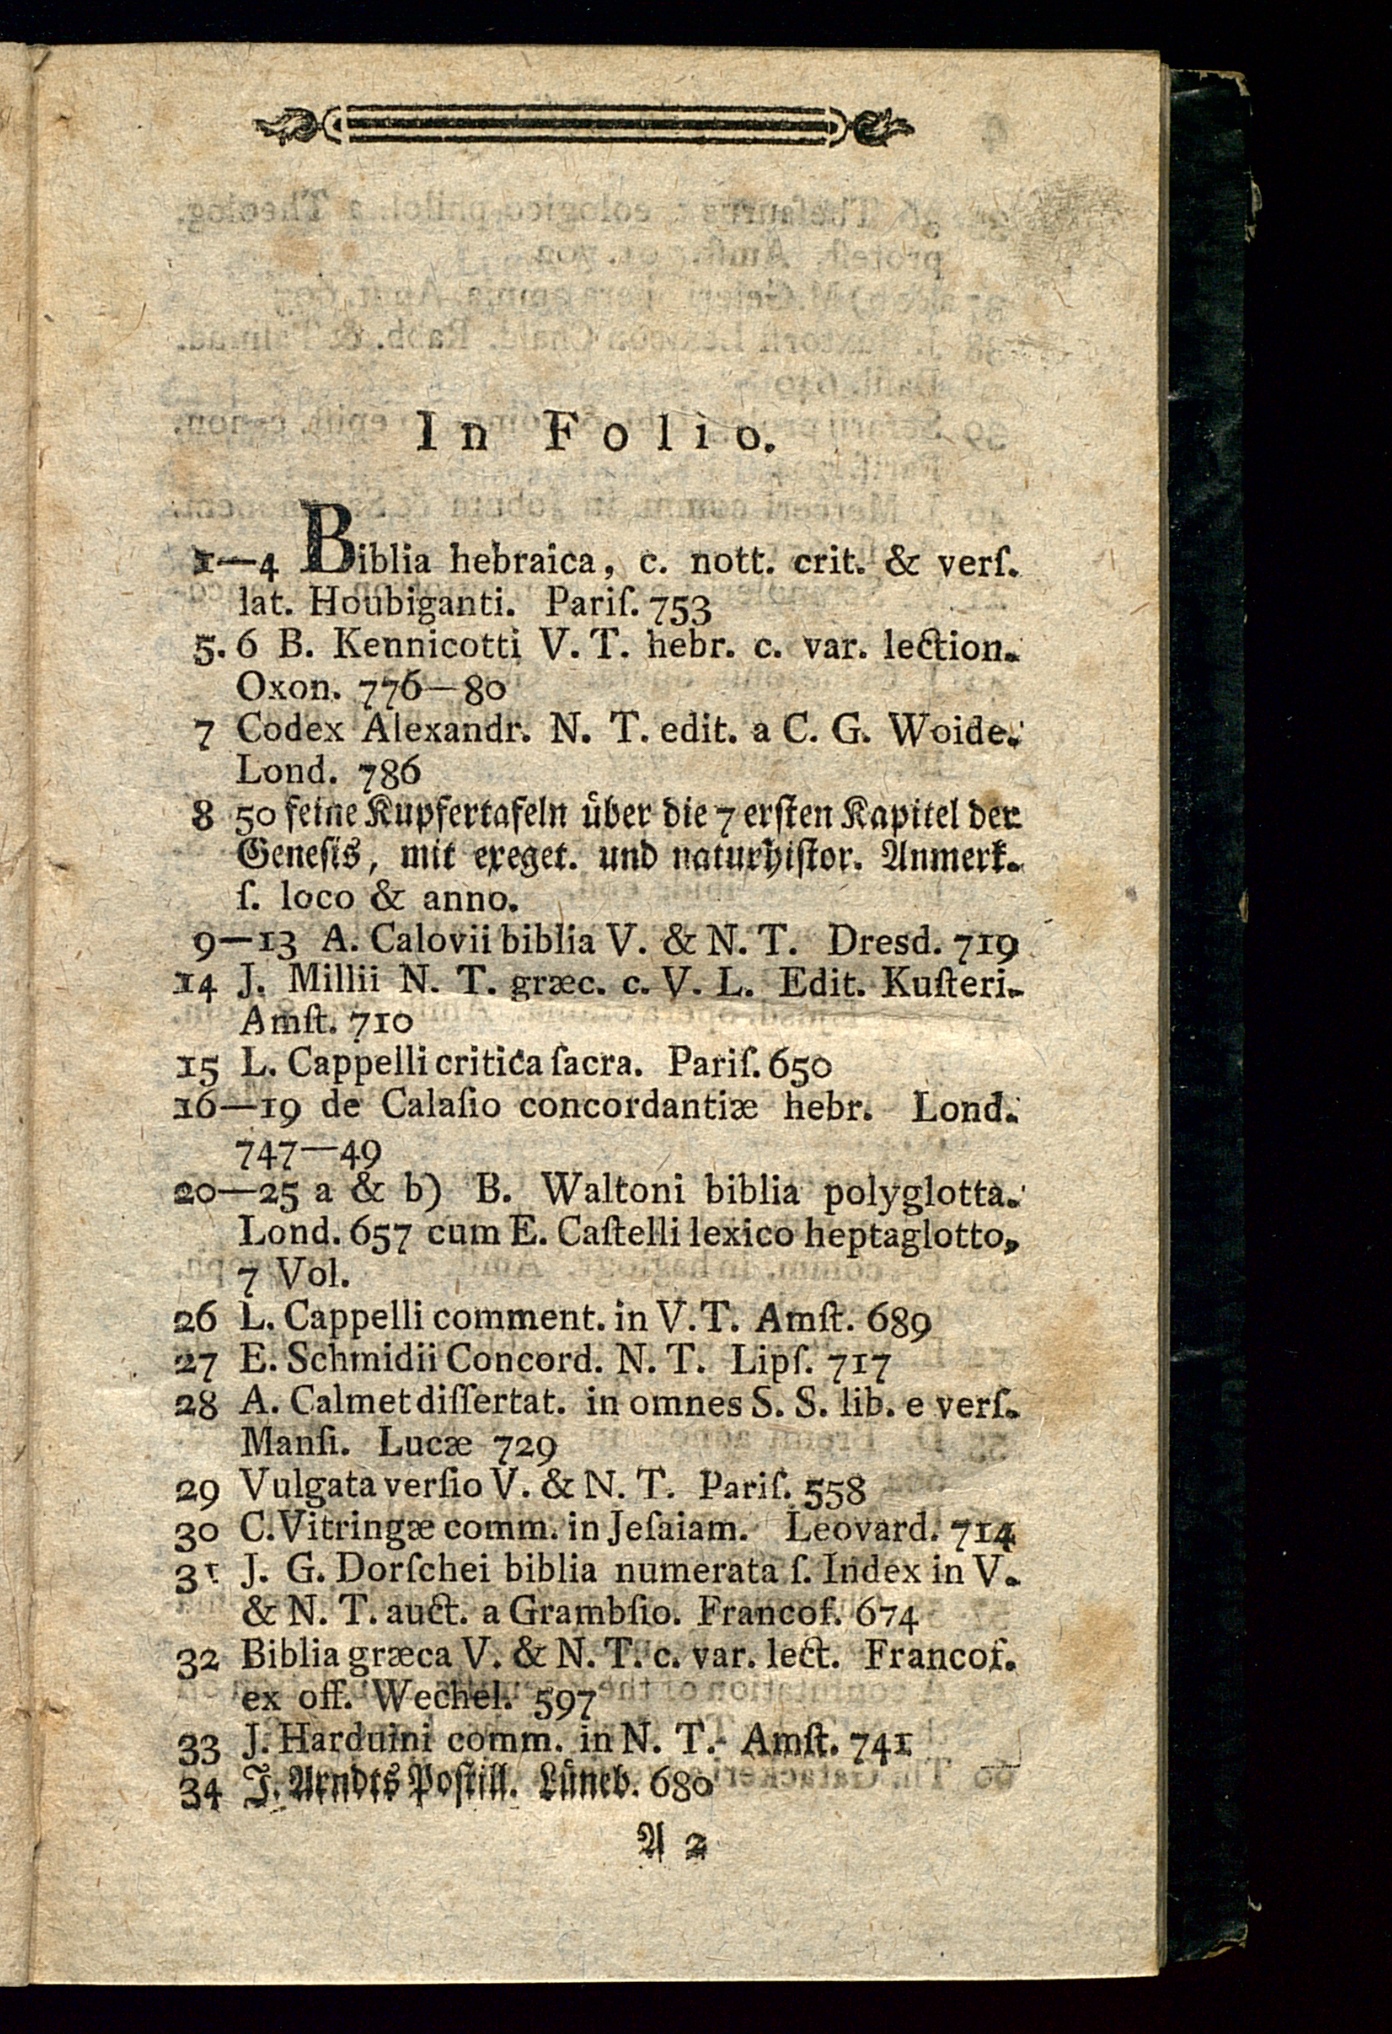 In Folio.
1—4 Biblia hebraica, c. nott. crit. & verſ.
lat. Houbiganti. Pariſ. 753
5. 6 B. Kennicotti V. T. hebr. c. var. lection.
Oxon. 776—80
7 Codex Alexandr. N. T. edit. a C. G. Woide.
Lond. 786
8 50 feine Kupfertafeln über die 7 erſten Kapitel der
Geneſis, mit exeget. und naturhiſtor. Anmerk.
ſ. loco & anno.
9—13 A. Calovii biblia V. & N. T. Dresd. 719
14 J. Millii N. T. græc. c. V. L. Edit. Kuſteri.
Amſt. 710
15 L. Cappelli critica ſacra. Pariſ. 650
16—19 de Calaſio concordantiæ hebr. Lond.
747—49
20—25 a & b) B. Waltoni biblia polyglotta.
Lond. 657 cum E. Caſtelli lexico heptaglotto,
7 Vol.
26 L. Cappelli comment. in V. T. Amſt. 689
27 E. Schmidii Concord. N. T. Lipſ. 717
28 A. Calmet diſſertat. in omnes S. S. lib. e verſ.
Manſi. Lucæ 729
29 Vulgata verſio V. & N. T. Pariſ. 558
30 C. Vitringæ comm. in Jeſaiam. Leovard. 714
31 J. G. Dorſchei biblia numerata ſ. Index in V.
& N. T. auct. a Grambſio. Francof. 674
32 Biblia græca V. & N. T. c. var. lect. Francof.
ex off. Wechel. 597
33 J. Harduini comm. in N. T. Amſt. 741
34 J. Arndts Poſtill. Lüneb. 680
A 2